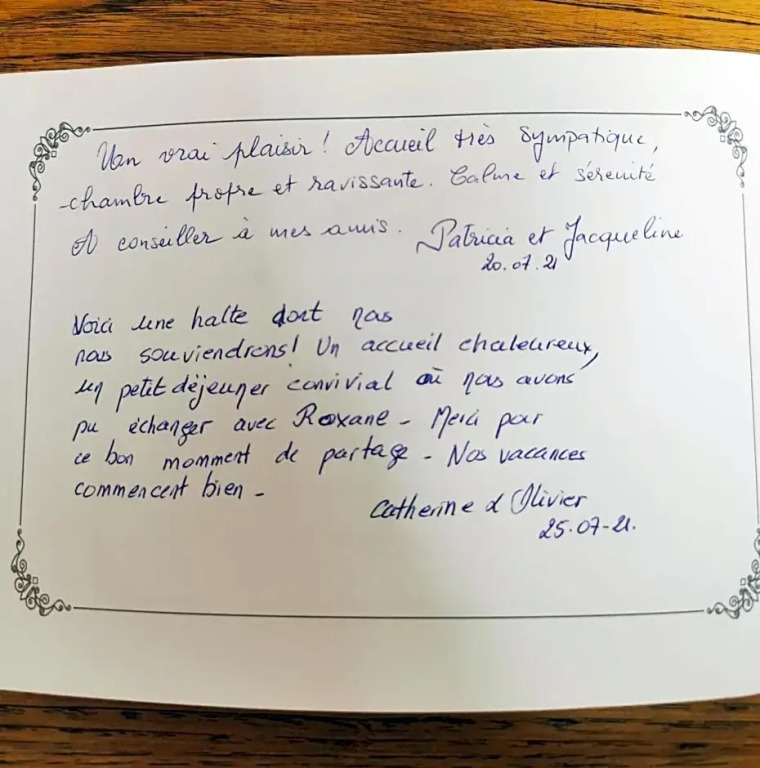 Un vrai plaisir! Accueil très sympatique,
chambre propre et ravissante. Calme et sérénité
A conseiller à mes amis. Patricia et Jacqueline
20.07.21
Voici une halte dont nous
nous souviendrons! Un accueil chaleureux,
un petit déjeuner convivial où nous avons
pu échanger avec Roxane - Merci pour
ce bon momment de partage - Nos vacances
commencent bien -
Catherine & Olivier
25-07-21.